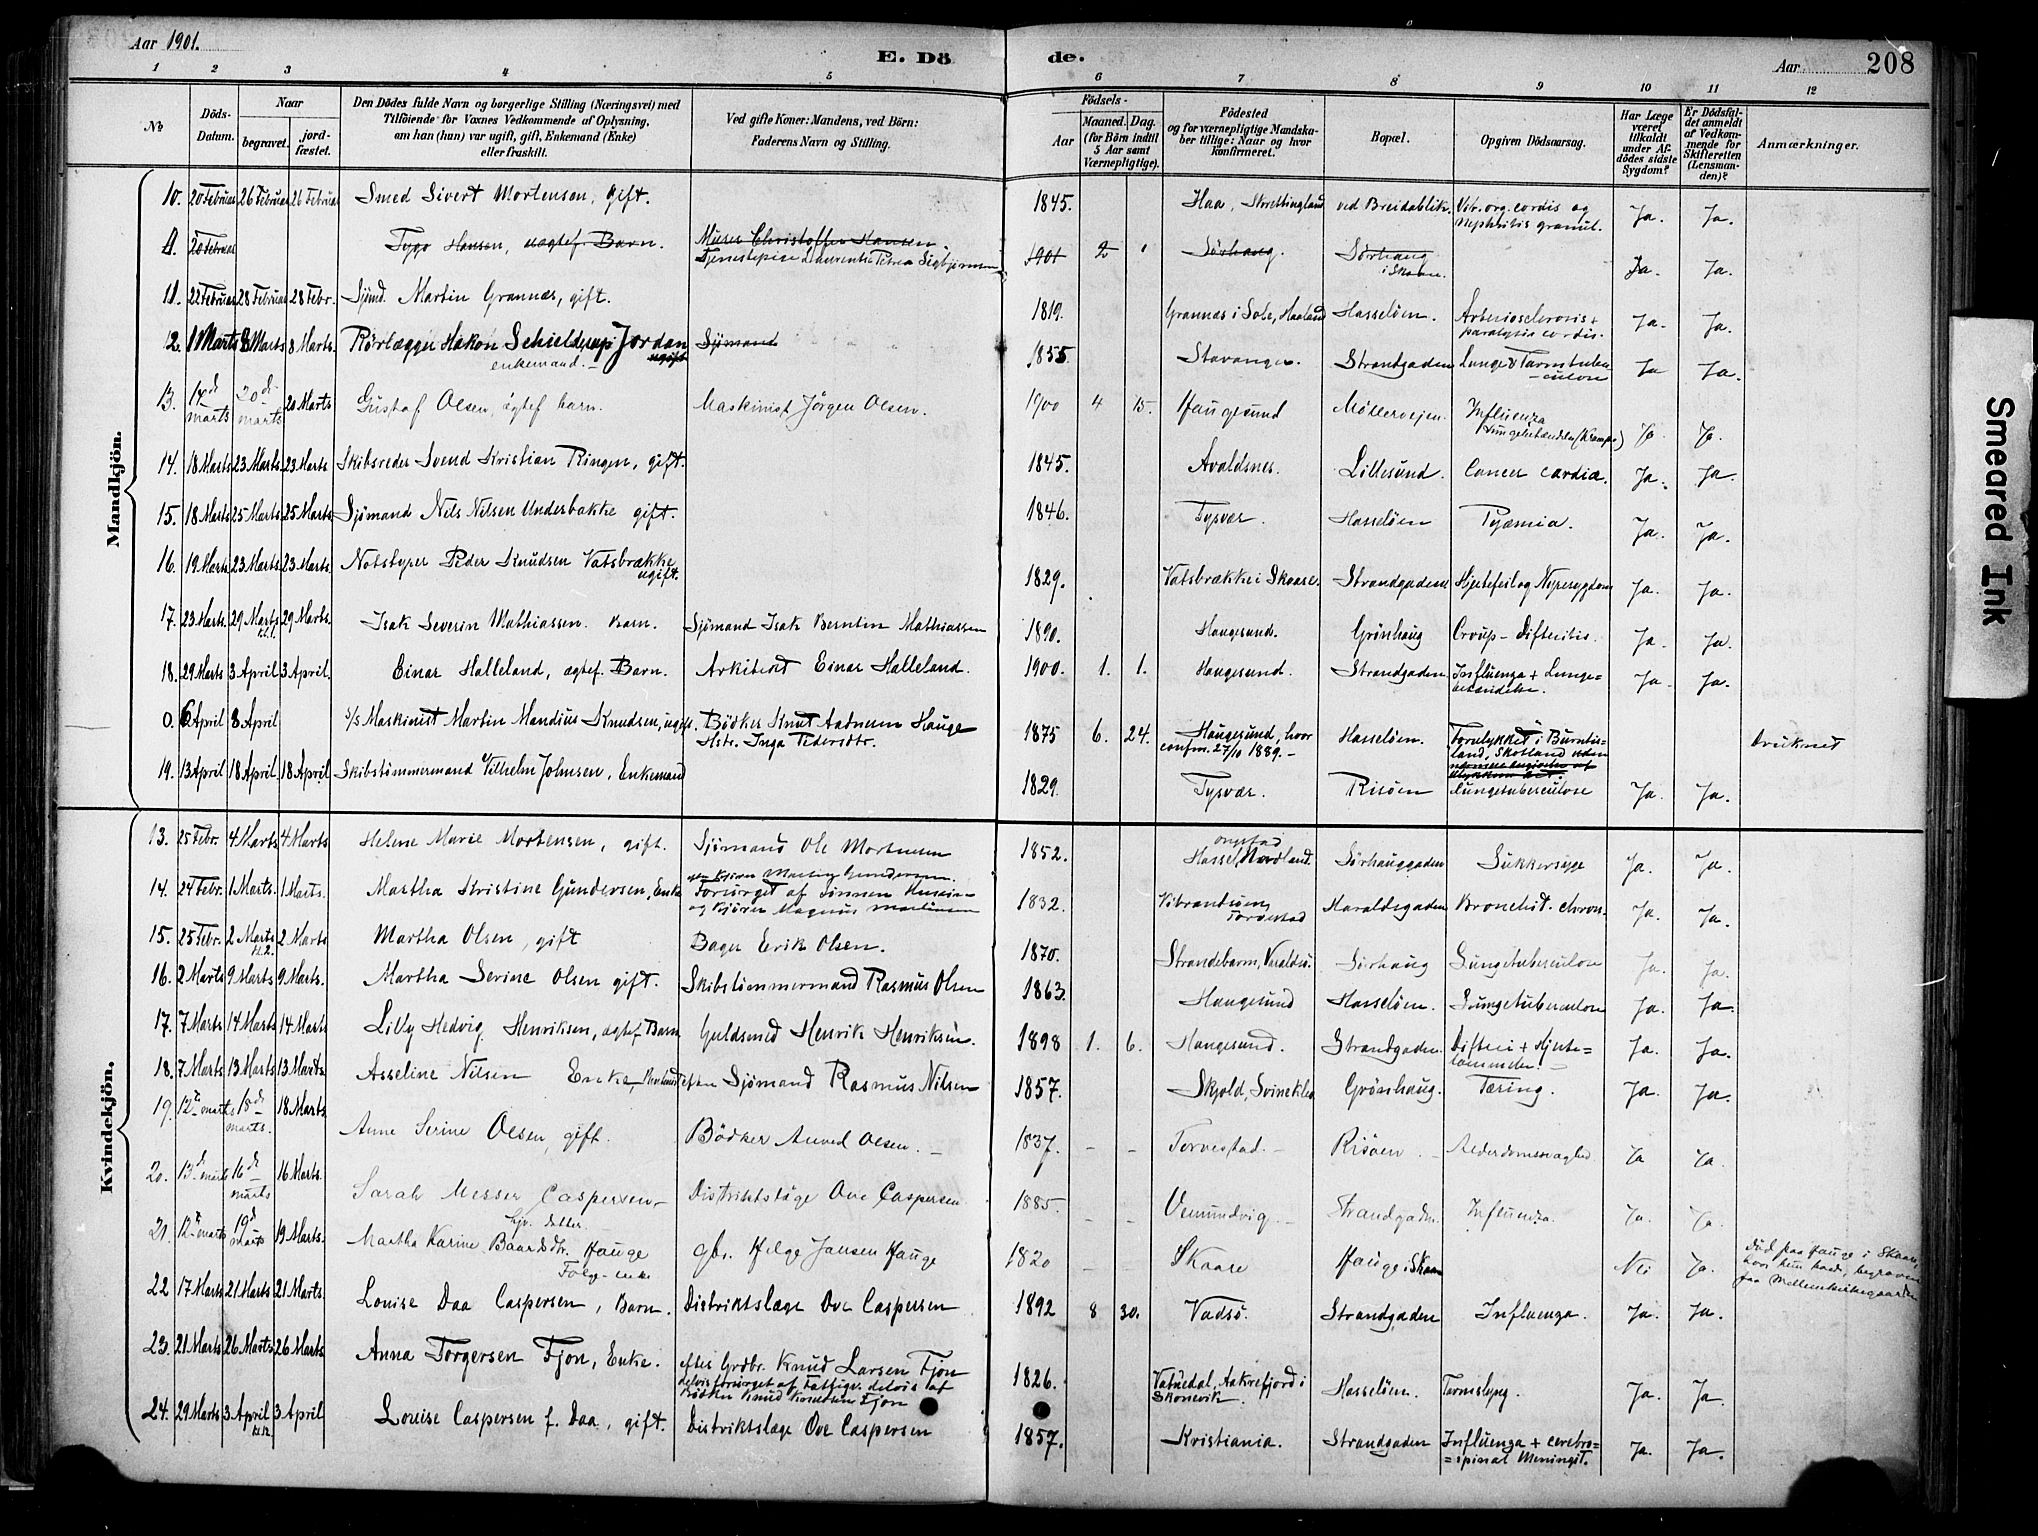 Aar 1901.
E. Dö
de.
Aar
208
1 2 3 4 5 6 7 8 9 10 11 12
No
Döds-Datum.
Naar
begravet.
jord-fæstet.
Den Dödes fulde Navn og borgerlige Stilling (Næringsvei) med
Tilföiende for Voxnes Vedkommende af Oplysning,
om han (hun) var ugift, gift, Enkemand (Enke)
eller fraskilt.
Ved gifte Koner: Mandens, ved Börn:
Faderens Navn og Stilling.
Födsels-
Aar
Maaned. Dag.
(for Börn indtil
5 Aar samt
Værnepligtige).
Födested
og for værnepligtige Mandska-
ber tillige: Naar og hvor
konfirmeret.
Bopæl.
Opgiven Dödsaarsag.
Har Læge
været
tilkaldt
under Af-
dödes sidste
Sygdom?
Er Dödsfal-
det anmeldt
af Vedkom-
mende for
Skifteretten
(Lensman-
den)?
Anmærkninger.
Mandkjön.
10. 20 Februar 26 Februar 26 Februar Smed Sivert Mortensen, gift. 1845. Haa, ved Breidablik. Vitr. org. cordis og
Nephritis granul. Ja. Ja.
20 Februar Hansen, uægtef. Barn. Christoffer Hansen.
Tjenestepige Laurentse Petrea Sigbjørnsen 1901 2 Sørhaug. Sørhaug
i Skaare. Ja. Ja.
11. 22 Februar 28 Februar 28 Febr. Sjømd. Martin Grannæs, gift. 1819. Grannæs i Sole, Haaland Hasseløen. Arteriosclerosis +
paralysis cordis. Ja. Ja.
12. 1 Marts 8 Marts 8 Marts. Rørlægger Hakon Schielderup Jordan
ugift
enkemand. Sjømand 1855. Stavanger. Strandgaden Lunge & Tarmtuber-
culose Ja Ja.
13. marts marts 20 Marts Gustaf Olsen, ægtef barn. Maskinist Jörgen Olsen. 1900 4 15. Haugesund Møllervejen. Influenza
Ja. Ja.
14. 18 Marts 23 Marts 23 Marts Skibsreder Svend Kristian Ringen, gift. 1845. Avaldsnes. Lillesund. Cancer cardia. Ja. Ja.
15. 18 Marts 25 Marts 25 Marts Sjømand Nils Nilsen Underbakke gift. 1846. Tysvær. Hasseløen Pyæmia. Ja. Ja.
16. 19 Marts 23 Marts 23 Marts. Notstyper Peder Knudsen Vatsbrække
ugift. 1829. Vatsbrække i Skaare. Strandgaden Hjertefeil og Nyresygdom Ja. Ja.
17. 23 Marts. 29 Marts 29 Marts. Isak Severin Mathiassen. Barn. Sjømand Isak Berntin Mathiassen 1890. Haugesund. Grønhaug Croup - Difteritis. Ja. Ja.
18. 29 Marts 3 April 3 April. Einar Halleland, ægtef. Barn. Arkitekt Einar Halleland. 1900. 1. 1. Haugesund. Strandgaden Influenza + Lunge=
betændelse. Ja. Ja.
0. 6 April 8 April s/s Maskinist Martin Mandius Knudsen, ugift. Bødker Knut Aadnesen Hauge
Hstr. Inga Pedersdtr. 1875 6. 24. Haugesund, hvor
confm. 27/10 1889. Hasseløen. Forulykket i Burntis=
land, Skotland uden
druknet
19. 13 April 18 April 18 April Skibstömmermand Vilhelm Johnsen, Enkemand 1829. Tysvær. Risøen Lungetuberculose Ja. Ja.
Kvindekjön.
13. 25 Febr. 4 Marts 4 Marts Helene Marie Mortensen, gift. Sjømand Ole Mortensen 1852. Hassel, Nordland. Sørhauggaden Sukkersyge Ja. Ja.
14. 24 Febr. 1 Marts. 1 Marts. Martha Kristine Gundersen, Enke
Forsørget af Sønnen
og Magnus Martinsen 1832. Vibrandsøen,
Torvestad Haraldsgaden Bronchit. chron. Ja. Ja.
15. 25 Febr. 2 Marts
kl. 2. 2 Marts Martha Olsen, gift Bager Erik Olsen. 1870. Strandebarm, Varaldsø. Sørhaug Lungetuberculose Ja. Ja.
16. 2 Marts 9 Marts 9 Marts. Martha Serine Olsen gift. Skibstömmermand Rasmus Olsen 1863. Haugesund Hasseløen. Lungetuberculose Ja. Ja.
17. 7 Marts 14 Marts 14 Marts Lilly Hedvig Henriksen, ægtef. Barn Guldsmed Henrik Henriksen. 1898 1. 6. Haugesund. Strandgaden. Difteri + Hjerte=
lammelse. Ja. Ja.
18. 7 Marts 13 Marts 13 Marts. Asseline Nilsen Enke efter Sjømand Rasmus Nilsen 1857. Skjold, Grønhaug. Tæring. Ja. Ja.
19. 12te marts 18de
marts. 18 Marts. Anne Serine Olsen, gift. Bödker Anved Olsen. 1837. Torvestad. Risøen Alderdomssvaghed. Ja Ja.
20. 13de marts 16de
marts 16 Marts. Sarah Messer Caspersen Distriktslæge Ove Caspersen 1885. Vemundvig. Strandgaden. Influenza. Ja. Ja.
hjv. datter.
21. 12te marts 19de
marts 19 Marts. Martha Karine Baardsdtr. Hauge
Gbr. Helge Jansen Hauge 1820 Skaare Hauge i Skaare Nei Ja. Död paa Hauge i Skaare,
hvor hun boede, begraven
paa Mellemkirkegaarden
22 17 Marts 21 Marts 21 Marts. Louise Daa Caspersen, Barn. Distriktslæge Ove Caspersen 1892 8 30. Vadsö. Strandgaden Influenza. Ja. Ja.
23. 21 Marts 26 Marts. 26 Marts. Anna Torgersen Fjon, Enke. efter Grdbr. Knud Larsen Fjon
delvis forsørget af Fattigv. delvis af
Bødker Knud Knudsen Fjon 1826. Vatnedal, Aakrefjord i
Skonevik. Hasseløen. Tarmslyng. Ja. Ja.
24. 29 Marts 3 April 3 April Louise Caspersen f. Daa, gift. Distriktslæge Ove Caspersen 1857. Kristiania. Strandgaden Influenza + cerebro=
=spinal Meningit. Ja. Ja.
Smeared Ink